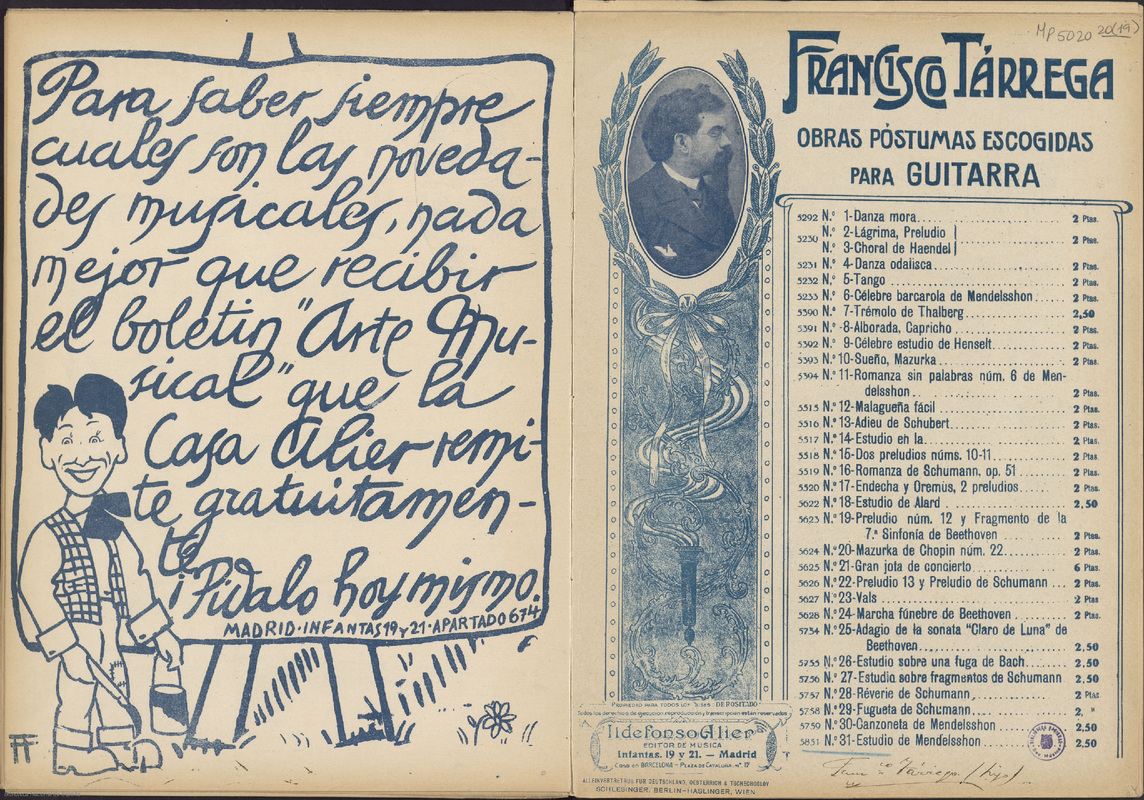 Para saber siempre
cuales son las noveda-
des musicales, nada
mejor que recibir
el boletin "Arte Mu-
sical" que la
Casa Alier remi-
te gratuitamen-
te.
¡Pidalo hoy mismo.
MADRID·INFANTAS 19 y 21·APARTADO 674
MP 5020 20(19)
FRANCISCO TÁRREGA
OBRAS PÓSTUMAS ESCOGIDAS
PARA GUITARRA
5292 N.º 1-Danza mora 2 Ptas.
5230 N.º 2-Lágrima, Preludio
N.º 3-Choral de Haendel 2 Ptas.
5231 N.º 4-Danza odalisca 2 Ptas.
5232 N.º 5-Tango 2 Ptas.
5233 N.º 6-Célebre barcarola de Mendelsshon 2 Ptas.
5390 N.º 7-Trémolo de Thalberg 2,50
5391 N.º 8-Alborada, Capricho 2 Ptas.
5392 N.º 9-Célebre estudio de Henselt 2 Ptas.
5393 N.º 10-Sueño, Mazurka 2 Ptas.
5394 N.º 11-Romanza sin palabras núm. 6 de Men-
delsshon 2 Ptas.
5515 N.º 12-Malagueña fácil 2 Ptas.
5516 N.º 13-Adieu de Schubert 2 Ptas.
5517 N.º 14-Estudio en la 2 Ptas.
5518 N.º 15-Dos preludios núms. 10-11 2 Ptas.
5519 N.º 16-Romanza de Schumann, op. 51 2 Ptas.
5520 N.º 17-Endecha y Oremus, 2 preludios 2 Ptas.
5622 N.º 18-Estudio de Alard 2,50
5623 N.º 19-Preludio núm. 12 y Fragmento de la
7.ª Sinfonía de Beethoven 2 Ptas.
5624 N.º 20-Mazurka de Chopin núm. 22 2 Ptas.
5625 N.º 21-Gran jota de concierto 6 Ptas.
5626 N.º 22-Preludio 13 y Preludio de Schumann 2 Ptas.
5627 N.º 23-Vals 2 Ptas
5628 N.º 24-Marcha fúnebre de Beethoven 2 Ptas.
5734 N.º 25-Adagio de la sonata "Claro de Luna" de
Beethoven 2.50
5735 N.º 26-Estudio sobre una fuga de Bach 2.50
5736 N.º 27-Estudio sobre fragmentos de Schumann 2.50
5757 N.º 28-Réverie de Schumann 2 Ptas
5758 N.º 29-Fugueta de Schumann 2. "
5759 N.º 30-Canzoneta de Mendelsshon 2.50
5851 N.º 31-Estudio de Mendelsshon 2.50
PROPIEDAD PARA TODOS LOS PAÍSES. DEPOSITADO
Todos los derechos de ejecución reproducción y transcripción están reservados
Ildefonso Alier
EDITOR DE MÚSICA
Infantas, 19 y 21. — Madrid
CASA EN BARCELONA — PLAZA DE CATALUÑA, N.º 17
ALLEINVERTRETUG FÜR DEUTSCHLAND, OESTERRICH & TSCHECHOSLOBY
SCHLESINGER, BERLIN-HASLINGER, WIEN
Tárrega (hijo)